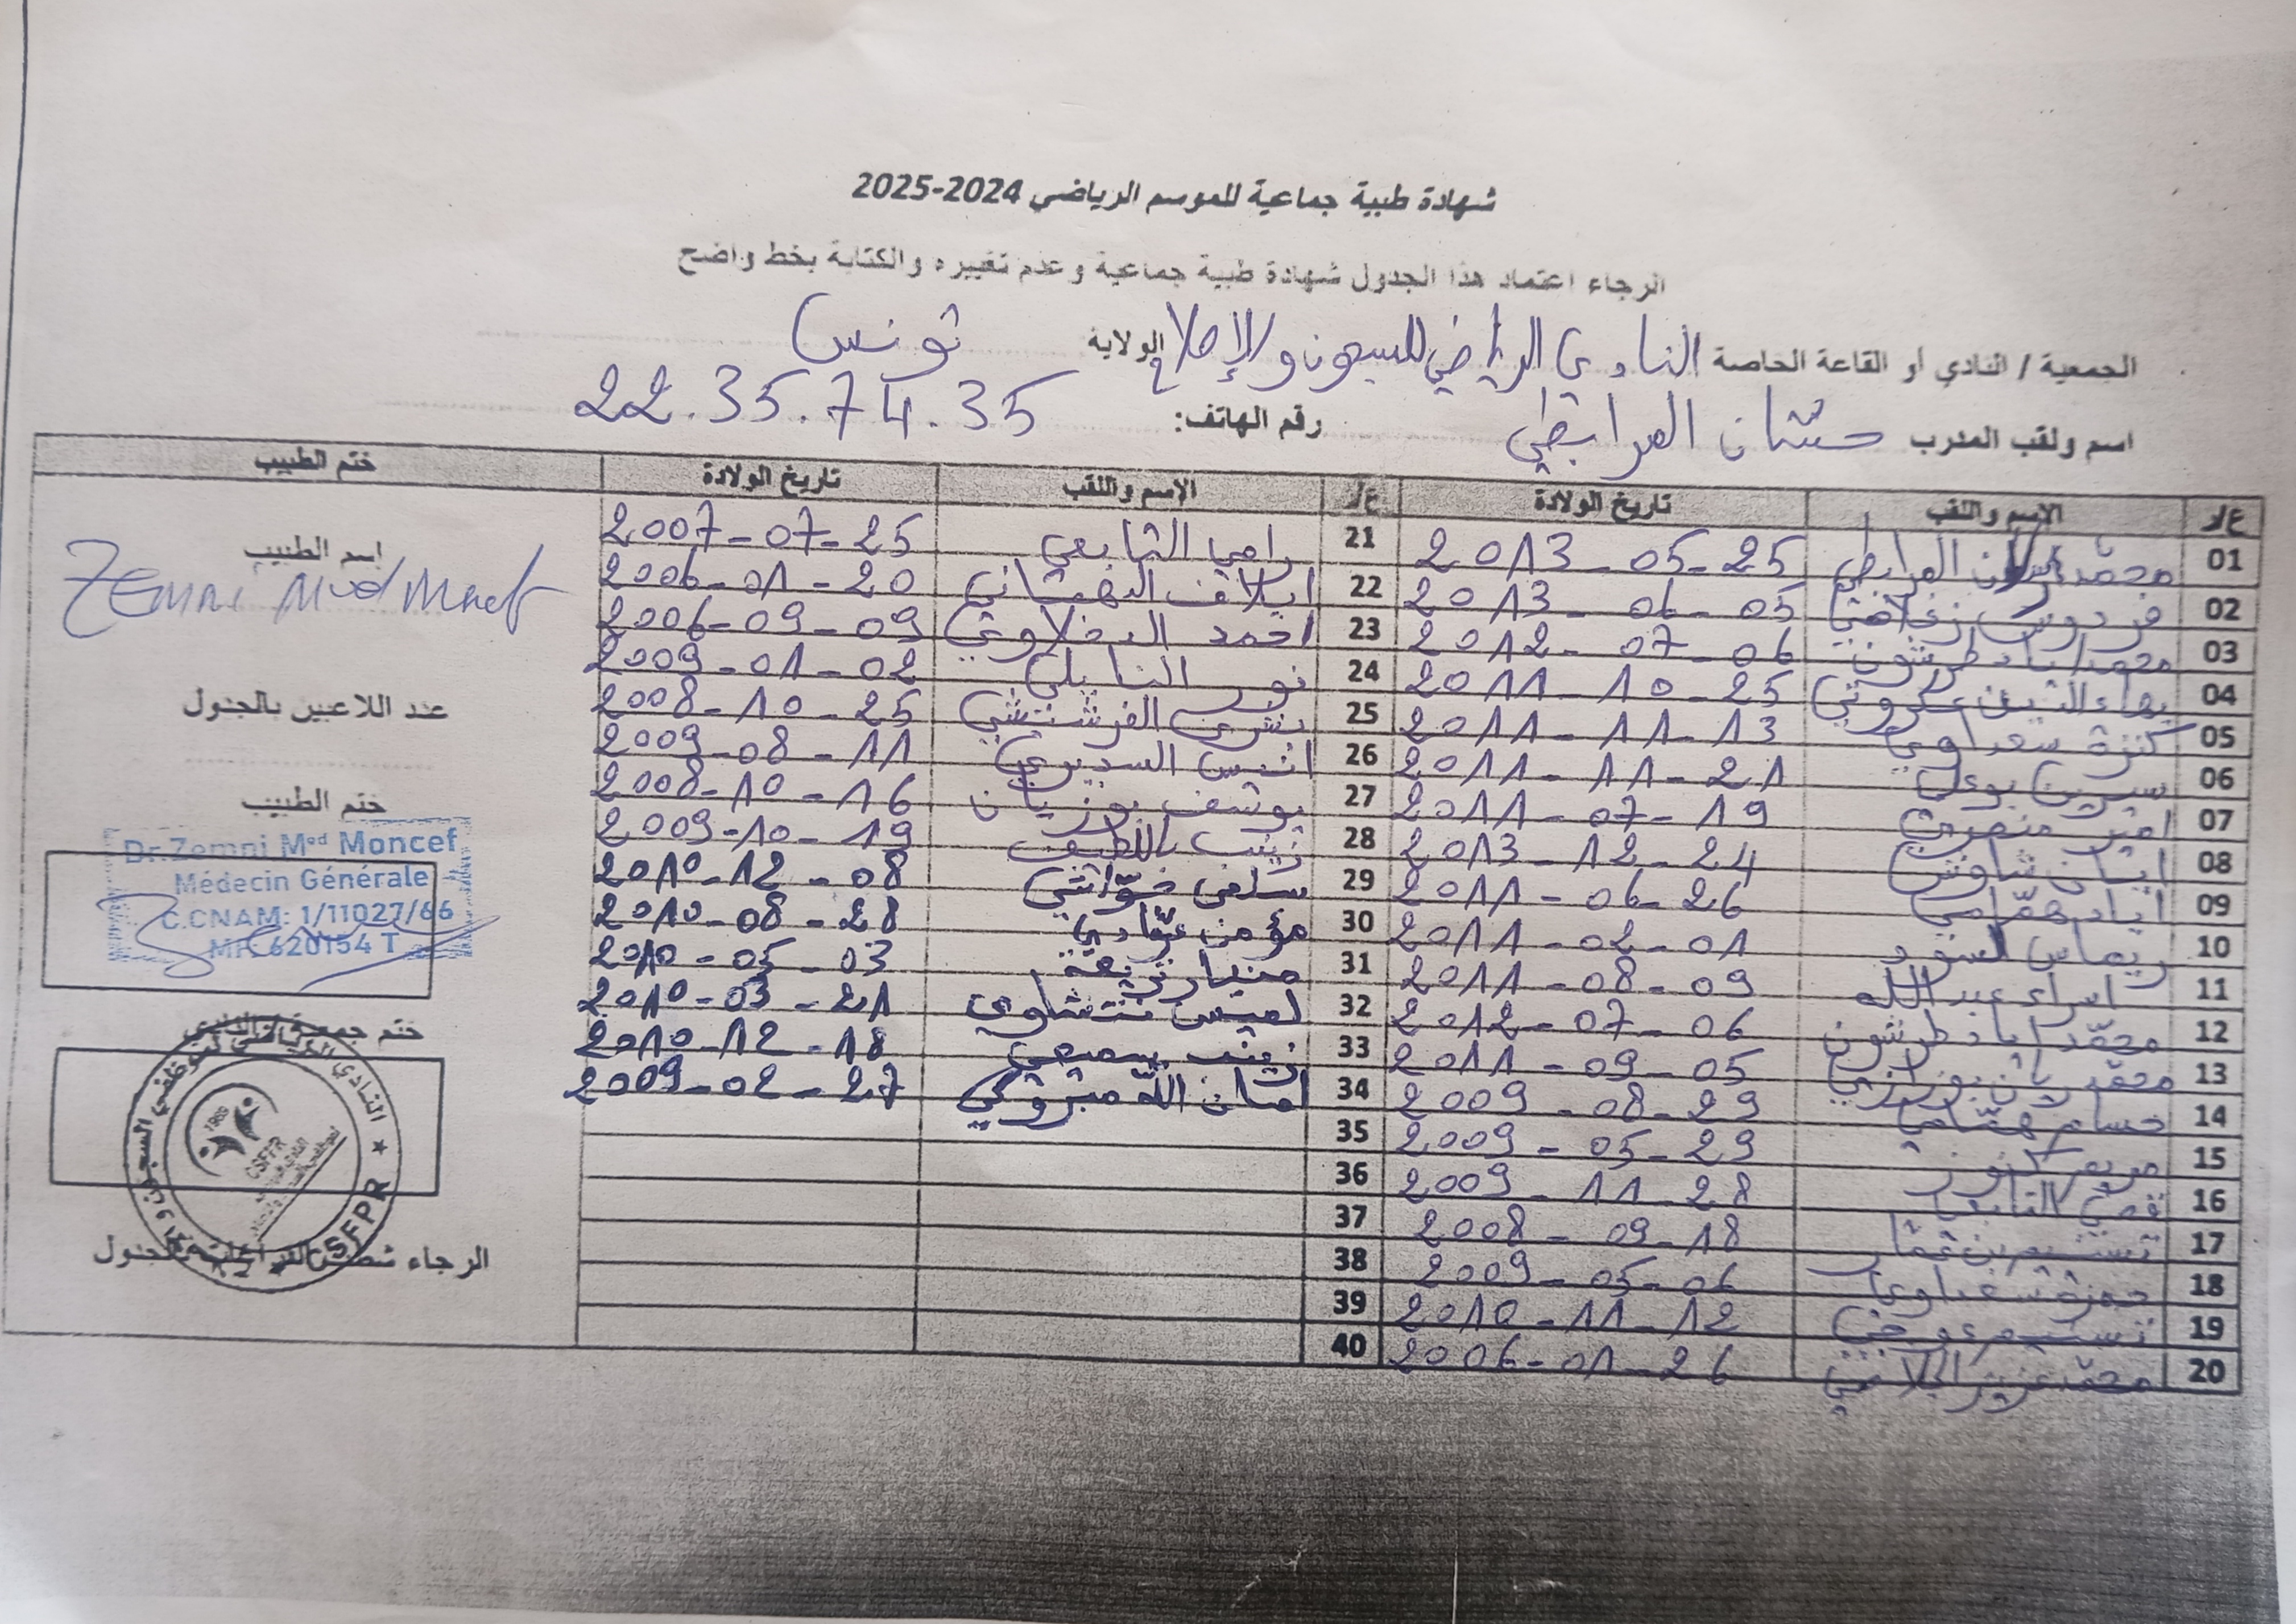 شهادة طبية جماعية للموسم الرياضي 2024-2025
الرجاء اعتماد هذا الجدول شهادة طبية جماعية وعدم تغييره والكتابة بخط واضح
الجمعية / النادي أو القاعة الخاصة النادي الرياضي للسجون والإصلاح الولاية تونس
اسم ولقب المدرب حسّان المرابطي رقم الهاتف: 22.35.74.35
ع/ر الإسم واللقب تاريخ الولادة ع/ر الإسم واللقب تاريخ الولادة ختم الطبيب
01 محمّد المرابطي 2013-05-25
02 فردوس زغلامي 2013-06-05
03 محمد اياد طرشون 2012-07-06
04 بهاء الدين عكروتي 2011-10-25
05 كنزة سعداوي 2011-11-13
06 سيرين بوعلي 2011-11-21
07 امير منصري 2011-07-19
08 شاوش 2013-12-24
09 اياد همّامي 2011-06-26
10 ريماس 2011-02-01
11 اسراء عبد الله 2011-08-09
12 محمّد اياد طرشون 2012-07-06
13 محمّد ريان 2011-09-05
14 حسام همّامي 2009-08-29
15 مريم 2009-05-29
16 قصي التابعي 2009-11-28
17 تسنيم بن عمّار 2008-09-18
18 حمزة سعداوي 2009-05-06
19 تسنيم 2010-11-12
20 محمّد عزيز الجلاصي 2006-01-26
21 رامي التابعي 2007-07-25
22 ايلاف 2006-01-20
23 احمد الدخلاوي 2006-09-09
24 نور النايلي 2009-01-02
25 بشرى الفرشيشي 2008-10-25
26 انيس السديري 2009-08-11
27 يوسف بوزيان 2008-10-16
28 زينب باللطيف 2009-10-19
29 سلمى 2010-12-08
30 مؤمن عيّادي 2010-08-28
31 ميار 2010-05-03
32 لميس 2010-03-21
33 زينب سميعي 2010-12-18
34 امان الله مبروكي 2009-02-27
35
36
37
38
39
40
إسم الطبيب
Zemni Med Moncef
عدد اللاعبين بالجدول
ختم الطبيب
Dr.Zemni Med Moncef
Médecin Générale
C.CNAM: 1/11027/66
MF: 620154 T
ختم جمعية / النادي
النادي الرياضي لموظفي السجون و
CSFPR
1985
CSFPR
الرجاء شطب الفراغات بالجدول